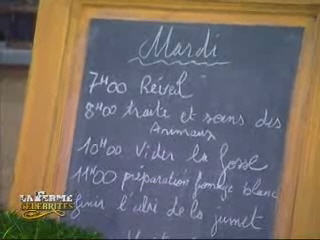 Mardi
7H00 Réveil
8H00 traite et soins des
Animaux
10H00 Vider la fosse
11H00 préparation fromage blanc
finir l'abri de la jument
LA FERME
CELEBRITES